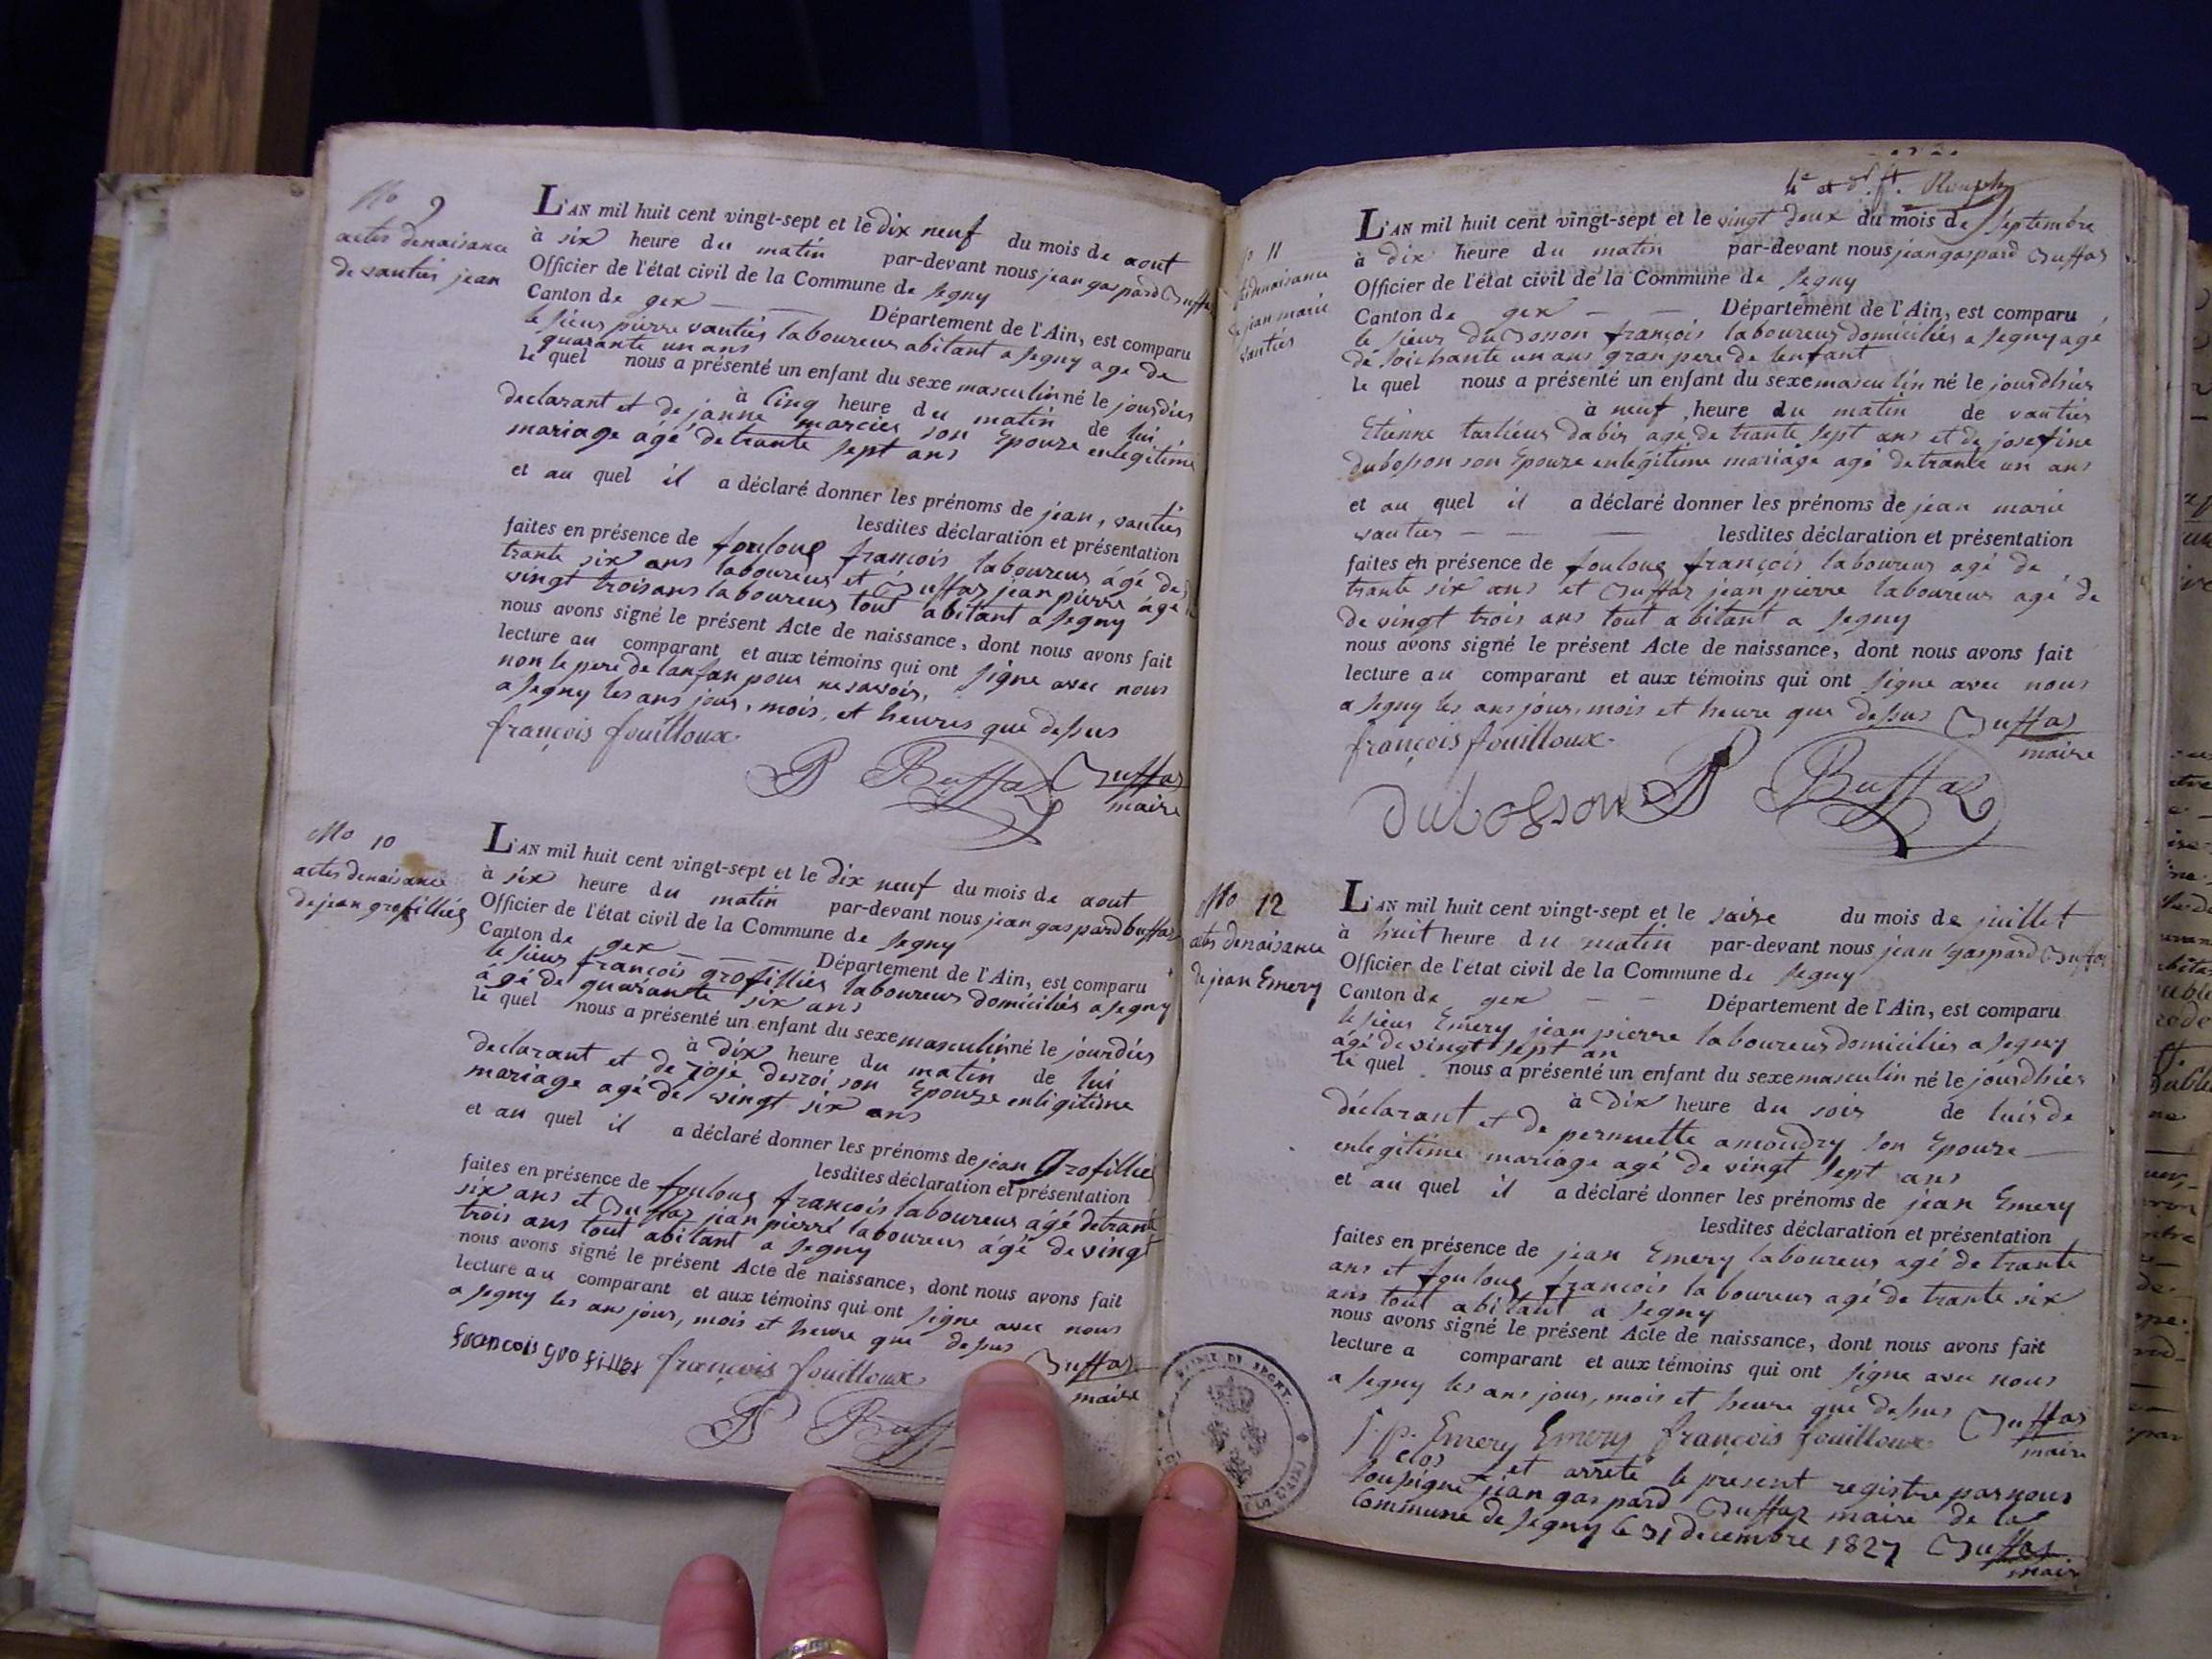 No 9
actes denaisance
de vautiér jean
L'AN mil huit cent vingt-sept et le Dix neuf du mois de aout
à six heure du matin par-devant nous jean gaspard Buffaz
Officier de l'état civil de la Commune de Segny
Canton de gex Département de l'Ain, est comparu
le sieur pierre vautiér laboureur abitant a Segny age de
quarante un ans
le quel nous a présenté un enfant du sexe masculin né le jourdier
à Cinq heure du matin de lui
declarant et de janne marcier son Epouze enlegitime
mariage âgé de trante sept ans
et au quel il a déclaré donner les prénoms de jean, vautiér
lesdites déclaration et présentation
faites en présence de foulouz francois laboureur âgé de
trante six ans laboureur et Buffaz jean pierre âgé
vingt trois ans laboureur tout abitant a Segny
nous avons signé le présent Acte de naissance, dont nous avons fait
lecture au comparant et aux témoins qui ont signe avec nous
non le pere de lanfan pour ne savoir,
a Segny les ans jour, mois, et heures que desus
françois fouilloux
P Buffaz Buffaz
maire
No 10
actes denaisance
de jean grofilliér
L'AN mil huit cent vingt-sept et le Dix neuf du mois de aout
à six heure du matin par-devant nous jean gaspard buffaz
Officier de l'état civil de la Commune de Segny
Canton de gex Département de l'Ain, est comparu
le sieur françois grofilliér laboureur domiciliér a Segny
âgé de quarante six ans
le quel nous a présenté un enfant du sexe masculin né le jourdier
à Dix heure du matin de lui
declarant et de joje desroi son Epouze enligitime
mariage agé de vingt six ans
et au quel il a déclaré donner les prénoms de jean Grofillié
lesdites déclaration et présentation
faites en présence de foulouz françois laboureur âgé detrante
six ans et Buffaz jean pierre laboureur âgé de vingt
trois ans tout abitant a Segny
nous avons signé le présent Acte de naissance, dont nous avons fait
lecture au comparant et aux témoins qui ont signe avec nous
a Segny les ans jours, mois et heure que desus
francois grofillex françois fouilloux Buffaz
maire
P Buff
4e et d. ft.
11
de jean marie
vautiér
L'AN mil huit cent vingt-sept et le vingt deux du mois de Septembre
à dix heure du matin par-devant nous jean gaspard Buffaz
Officier de l'état civil de la Commune de Segny
Canton de gex Département de l'Ain, est comparu
le sieur duBosson françois laboureur domiciliér a Segny agé
de soichante un ans gran pere de lenfant
le quel nous a présenté un enfant du sexe masculin né le jourdhier
à neuf heure du matin de vautiér
Etienne tarlieur dabis agé de trante sept ans et de josefine
dubosson son Epouze enlegitime mariage agé de trante un ans
et au quel il a déclaré donner les prénoms de jean marie
vautier lesdites déclaration et présentation
faites en présence de foulouz françois laboureur agé de
trante six ans et Buffaz jean pierre laboureur agé de
de vingt trois ans tout abitant a Segny
nous avons signé le présent Acte de naissance, dont nous avons fait
lecture au comparant et aux témoins qui ont signe avec nous
a Segny les ans jours, mois et heure que desus Buffaz
maire
françois fouilloux
Dubosson P Buffaz
No 12
actes denaisance
de jean Emery
L'AN mil huit cent vingt-sept et le saize du mois de juillet
à huit heure du matin par-devant nous jean gaspard Buffaz
Officier de l'état civil de la Commune de Segny
Canton de gex Département de l'Ain, est comparu
le sieur Emery jean pierre laboureur domiciliér a Segny
âgé de vingt sept an
le quel nous a présenté un enfant du sexe masculin né le jourdhier
à Dix heure du soir de lui de
déclarant et de pernuette amoudry son Epouze
enlegitime mariage agé de vingt sept ans
et au quel il a déclaré donner les prénoms de jean Emery
lesdites déclaration et présentation
faites en présence de jean Emery laboureur agé de trante
ans et foulouz françois laboureur agé de trante six
ans tout abitant a Segny
nous avons signé le présent Acte de naissance, dont nous avons fait
lecture a comparant et aux témoins qui ont signe avec nous
a Segny les ans jours, mois et heure que desus Buffaz
maire
j. p. Emery Emery françois fouilloux
Clos et arreté le present registre par nous
Sousigné jean gaspard Buffaz maire de la
Commune de Segny le 31 decembre 1827 Buffaz
maire